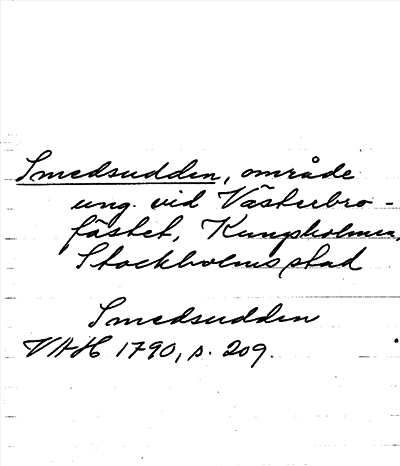 Smedsudden, område
ung. vid Västerbro-
fästet, Kungsholmen,
Stockholms stad
Smedsudden
VAH 1790, s. 209.